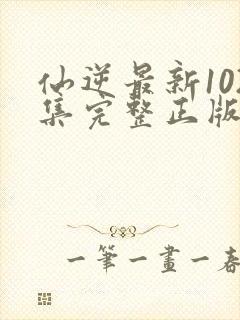 仙逆最新102
集完整正版
一筆一畫一春